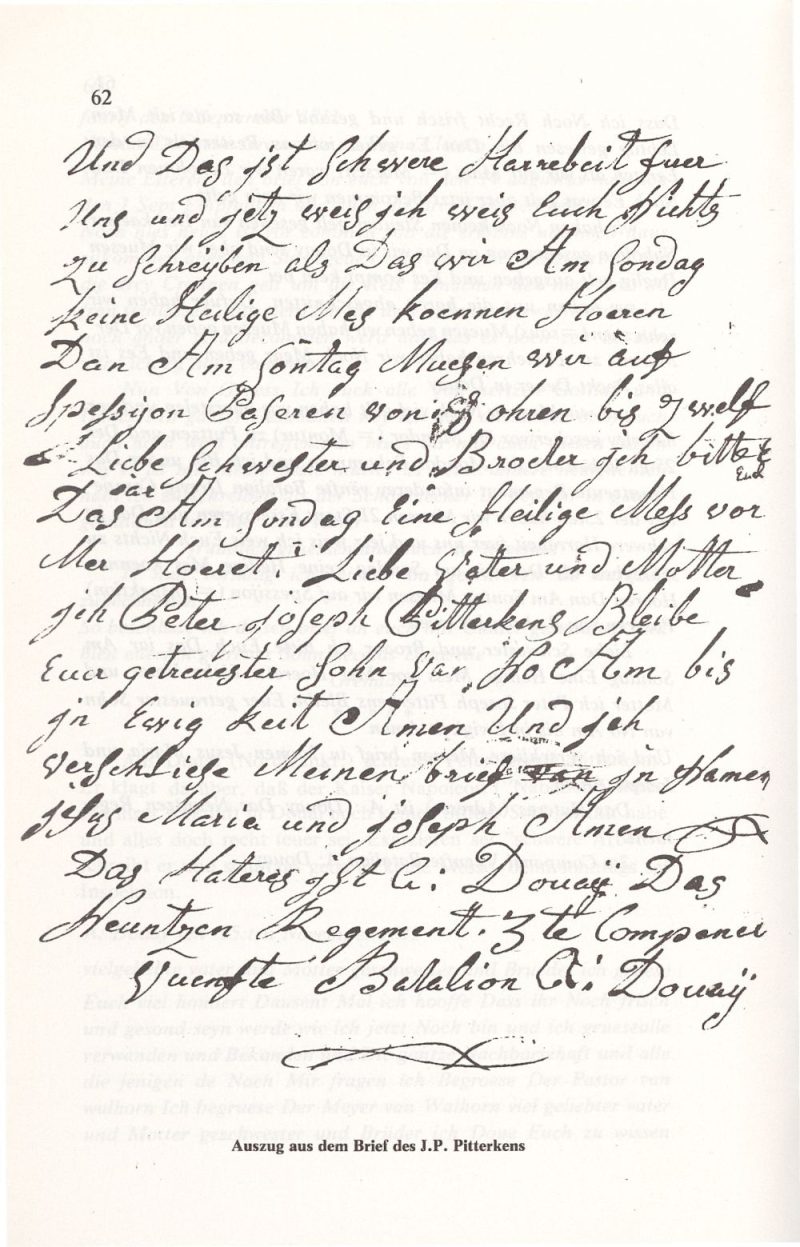 62
Und Das jst schwere Harrebeit fuer
Uns und jetz weis jch weis Euch Nichts
zu schreyben als Das wir Am sondag
keine Heilige Mes koennen Hoeren
Dan Am sontag Muesen wir auf
spessijon Paseren von ohren bis zwelf
Liebe schwester und Broder jch bitte
Euch
Das Am sondag Eine Heilige Mess vor
Mer Hoeret: Liebe Vater und Motter
jch Peter joseph Pitterkens Bleibe
Euer getreuester sohn van No Am bis
jn Ewig keit Amen Und jch
verschliese Meinen brief jn Namen
jesus Maria und joseph Amen
Das Hateres jst A: Douaij Das
Neuntzen Regement. 3te Compenei
Fuenfte Batalion A: Douaij
Auszug aus dem Brief des J.P. Pitterkens